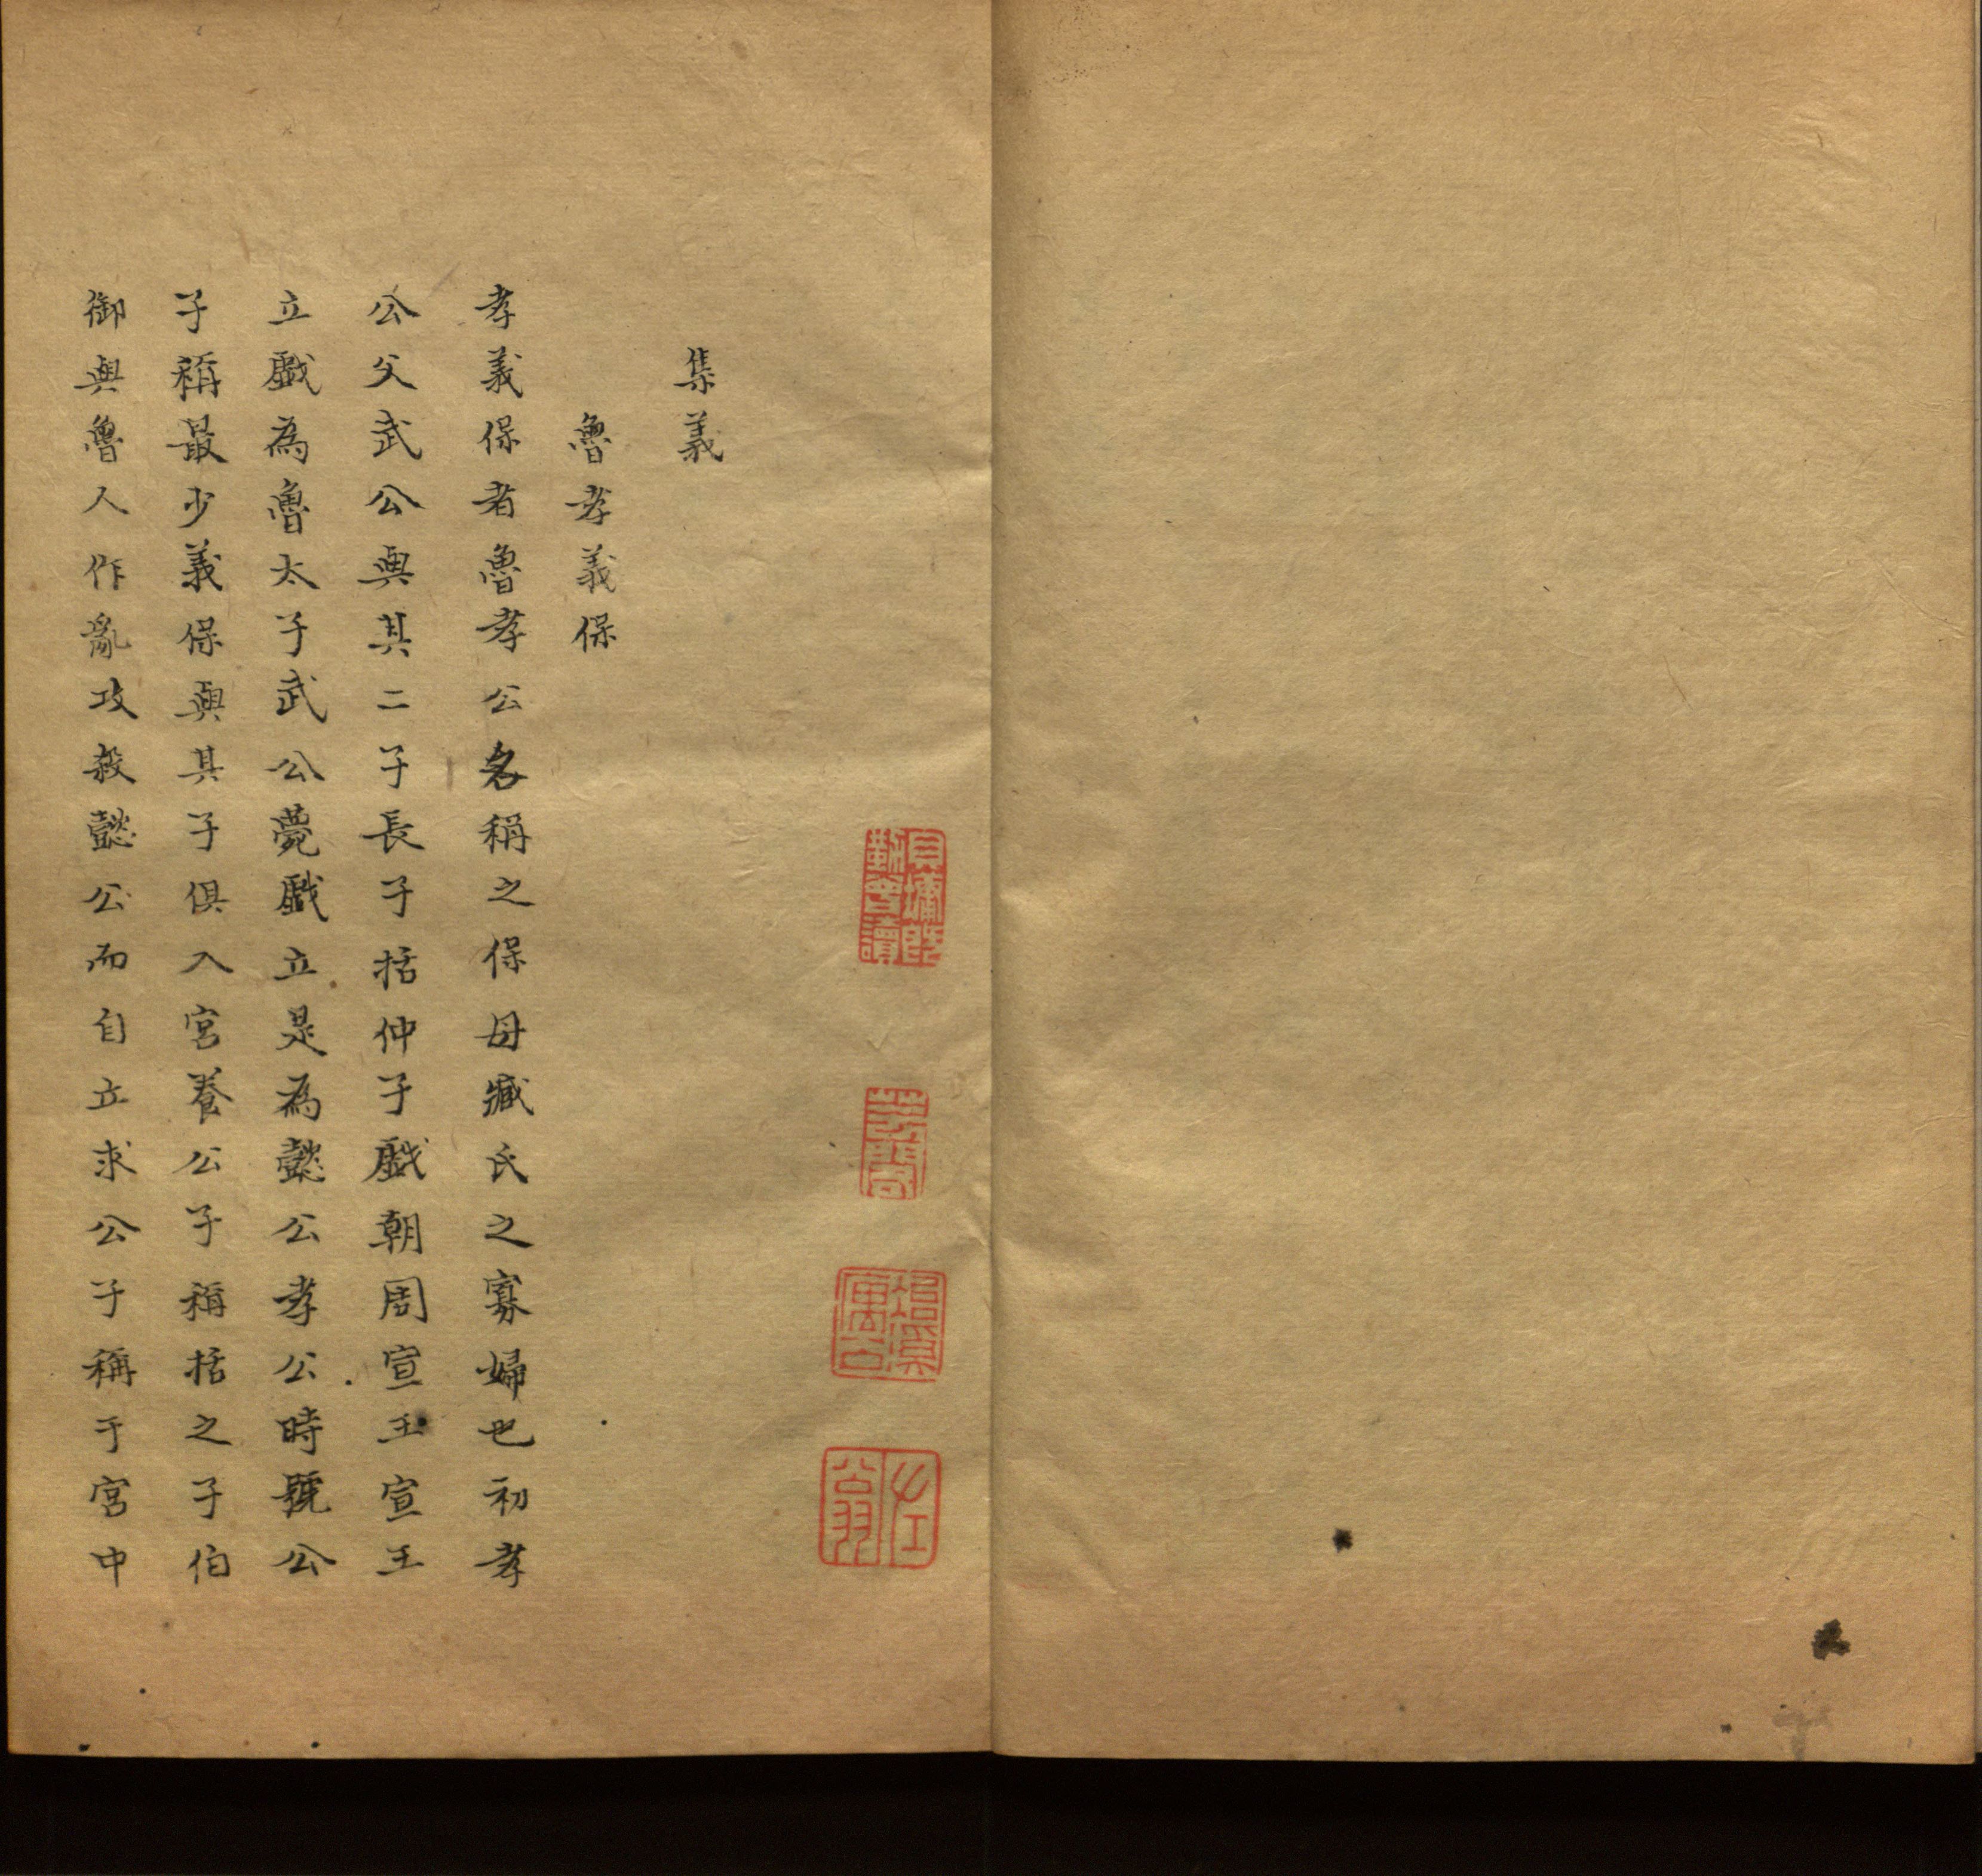 集義
魯孝義保
孝義保者魯孝公名稱之保母臧氏之寡婦也初孝
公父武公與其二子長子括仲子戲朝周宣王宣王
立戲為魯太子武公薨戲立是為懿公孝公時號公
子稱最少義保與其子俱入宮養公子稱括之子伯
御與魯人作亂攻殺懿公而自立求公子稱于宮中